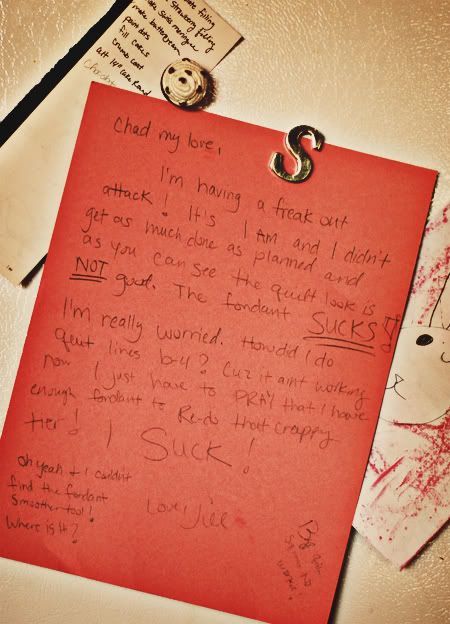 filling
Strawberry filling
Swiss meringue
make buttercream
paint dots
fill cakes
crumb coat
S
Chad my love,
I'm having a freak out
attack! It's 1 AM and I didn't
get as much done as planned and
as you can see the quilt look is
NOT good. The fondant SUCKS!
I'm really worried. How did I do
quilt lines b-4? Cuz it aint working
now I just have to PRAY that I have
enough fondant to Re-do that crappy
tier! I SUCK!
oh yeah & I couldn't
find the fondant
smoother tool!
Where is it?
Love, Jill